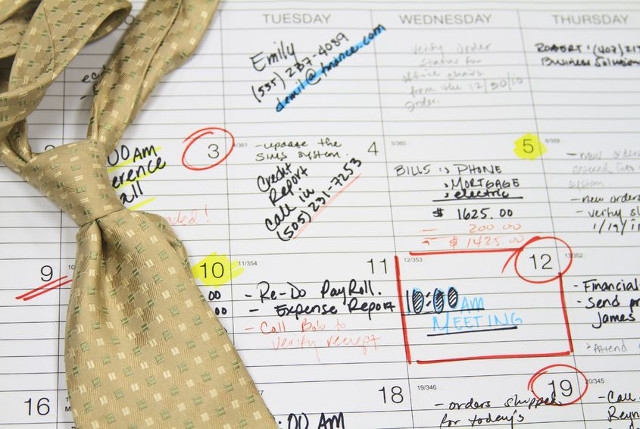 TUESDAY
WEDNESDAY
THURSDAY
Emily
(555) 287-4089
Verify order
status for
office chairs
from the 12/30/15
order.
Business Solutions
00 AM
erence
all
3
- upgrade the
SIMS system.
Credit
Report
Call in
(505) 231-7253
4
BILLS : PHONE
: MORTGAGE
: electric
$ 1625.00
- 200.00
- $ 1425.00
5
- new orders
system
- new orders
- verify
9
10
00
00
11/354
- Re-Do PayRoll.
- Expense Report
- Call Bob to
verify receipt
11
12/353
10:00 AM
MEETING
12
- Financial
- Send
James
16
:00 AM
18
19/346
- orders shipped
for today's
19
20/345
- Call